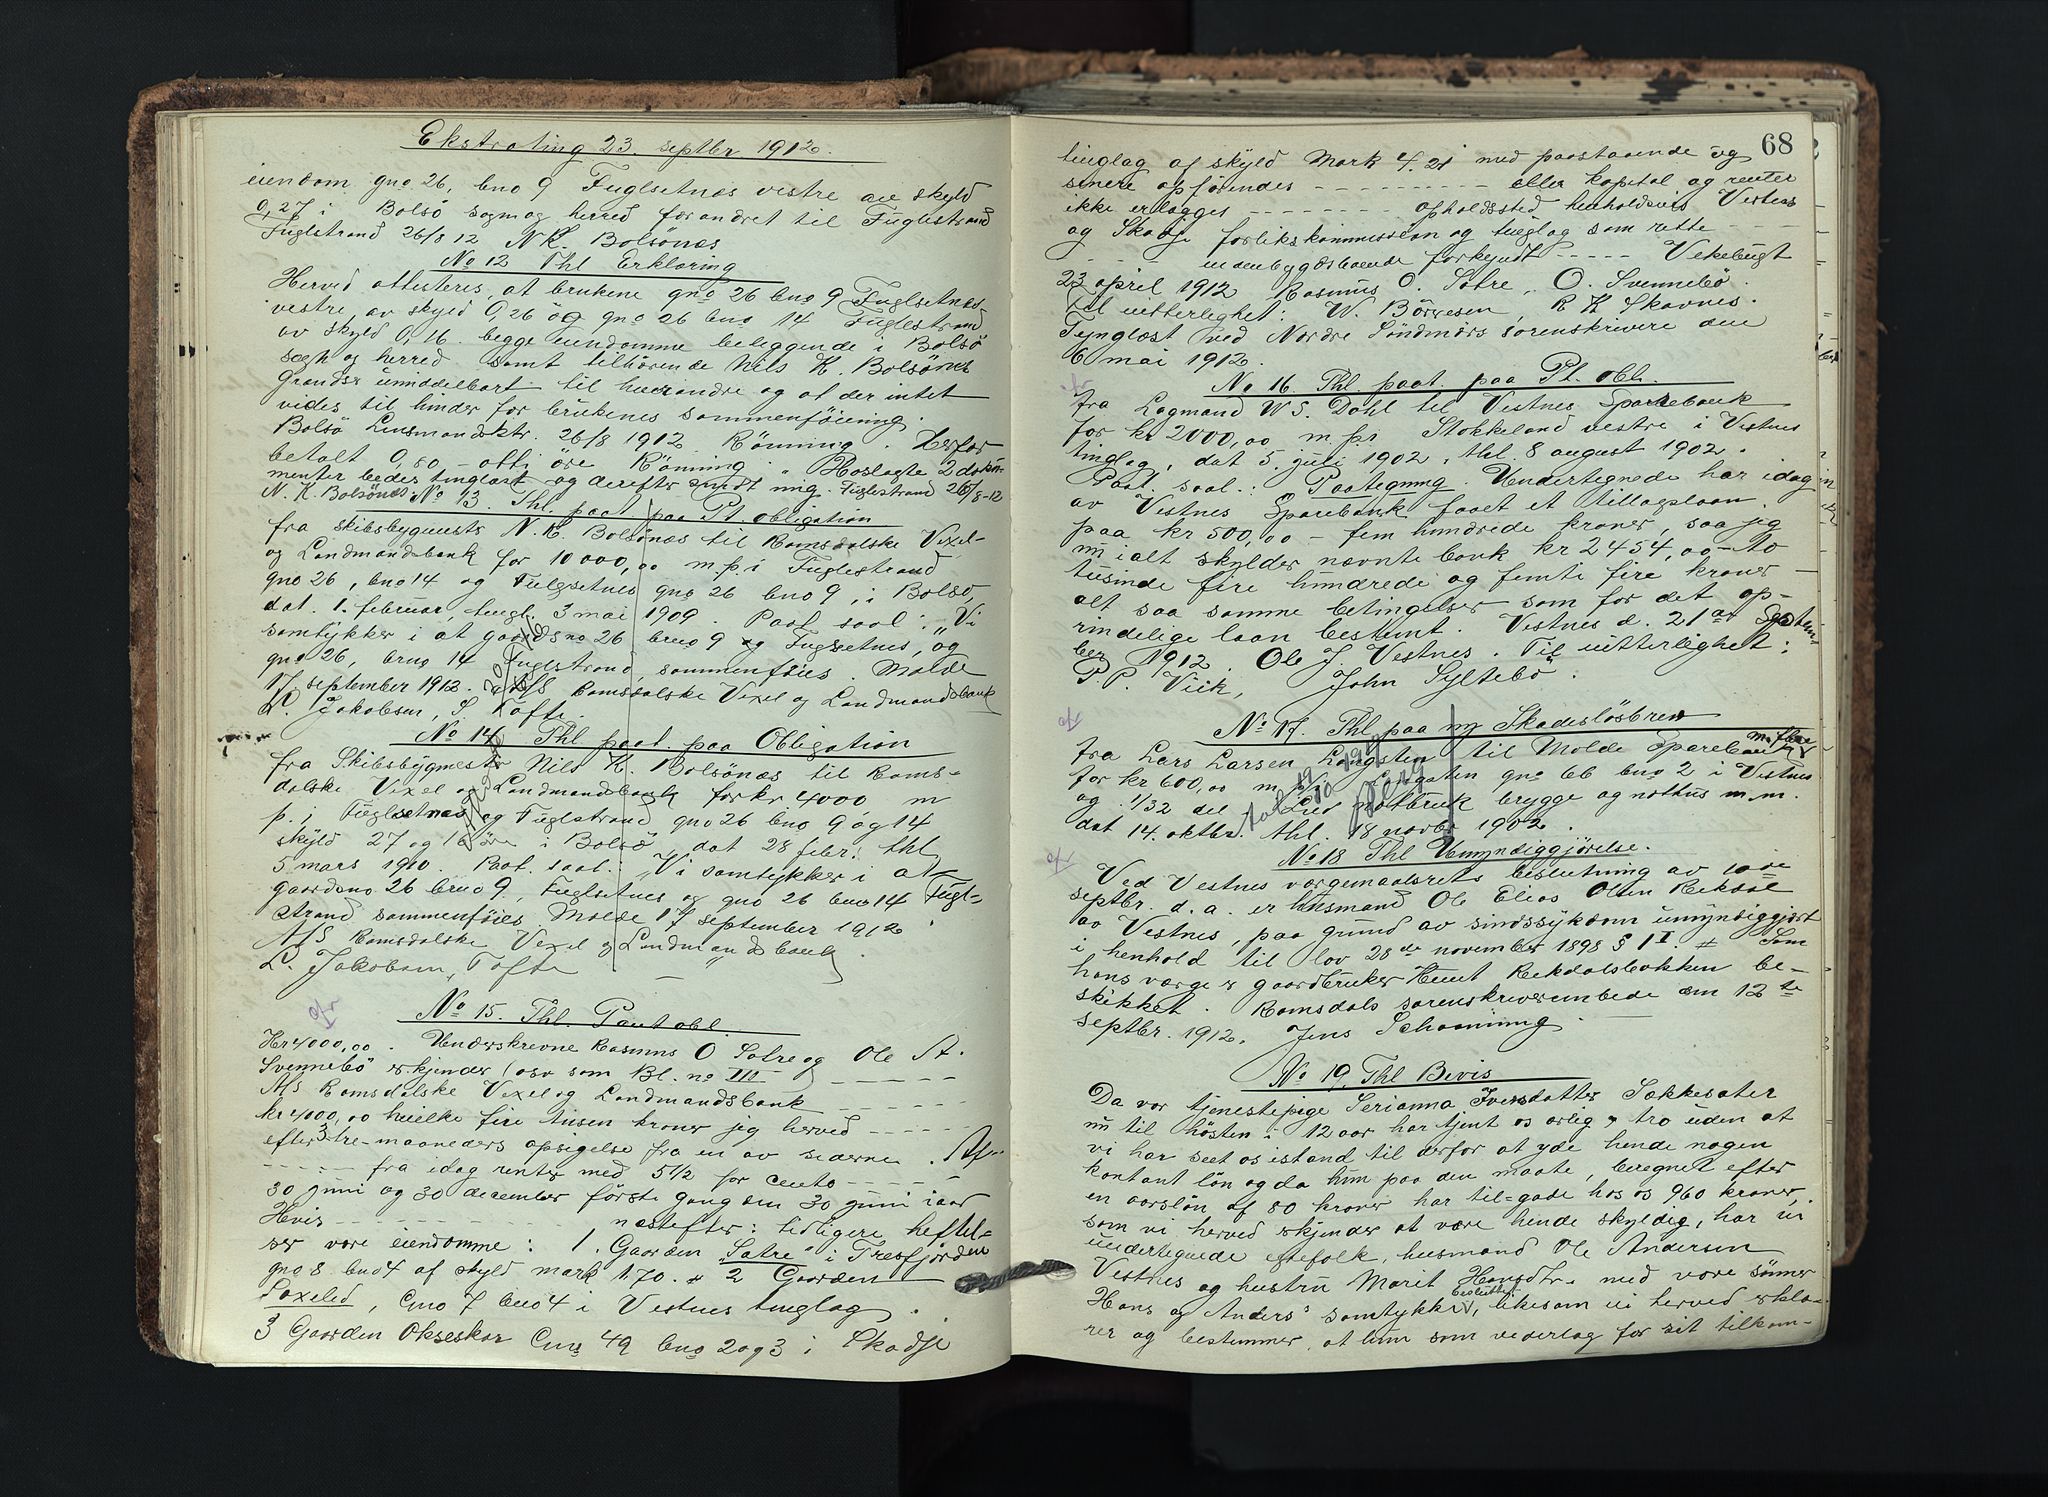 Ekstrating 23. septbr 1912.
eiendom gno 26, bno 9 Fuglsetnes vestre av skyld
0,27 i Bolsö sogn og herred forandret til Fuglestrand
Fuglstrand 26/8 12 N.K. Bolsönes
No 12 Thl Erklæring
Herved attesteres, at brukene gno 26 bno 9 Fuglsetnes
vestre, av skyld 0,26 og gno 26 bno 14 Fuglestrand
av skyld 0,16. begge eiendomme beliggende i Bolsö
sogn og herred samt tilhörende Nils K. Bolsönes
grændser umiddelbart til hverandre og at der intet
vides til hinder for brukenes sammenföining.
Bolsö Lensmandsktr. 26/8 1912 Rönning. Herfor
betalt 0,80 - otti öre Rönning. Hoslagte 2 doku-
menter bedes tinglæst og derefter sendt mig. Fuglestrand 26/8-12
N. K. Bolsönes No 13. Thl. paat. paa Pt. obligation
fra skibsbygmester N. K. Bolsönes til Romsdalske Vexel-
og Landmandsbank for 10 000,00 m. p. i Fuglestrand
gno 26, bno 14 og Fuglsetnes gno 26 bno 9, i Bolsö,
dat. 1. februar, tingl. 3 mai 1909. Paat. saal.: "Vi
samtykker i at gaardsno 26 bruno 9 og Fuglsetnes, og
gno 26, bruno 14 Fuglestrand sammenföies. Molde
17 september 1912. A/S Romsdalske Vexel og Landmandsbank
L. Jakobsen, S. Tofte.
No 14 Thl paat. paa Obligation
fra Skibsbygmester Nils K. Bolsönes til Roms-
dalske Vexel og Landmandsbank for kr 4000 m
p. i Fuglsetnes og Fuglstrand gno 26 bno 9 og 14
skyld 27 og 16 öre i Bolsö, dat 28 febr. thl
5 mars 1910. Paat. saal.: "Vi samtykker i at
gaardsno 26 bruno 9, Fuglsetnes og gno 26 bno 14 Fugl-
strand sammenföies. Molde 17 september 1912.
A/S Romsdalske Vexel og Landmandsbank.
L. Jakobsen, Tofte
No 15. Thl. Pantobl.
Kr 4000,00. Underskrevne Rasmus O Sætre og Ole A.
Svennebö erkjender (osv som Bl. no III
A/S Romsdalske Vexel og Landmandsbank
kr 4000,00 hvilke fire tusen kroner jeg herved
efter 3 tre-maaneders opsigelse fra en av siderne. Af-
fra idag renter med 5 1/2 for cento
30 juni og 30 december förste gang den 30 juni iaar
Hvis næstefter: tidligere heftel-
ser vore eiendomme: 1. Gaarden "Sætre" i Tresfjorden
gno 8 bno 4 af skyld mark 1.70. 2 Gaarden
, Gno 7 bno 4 i Vestnes tinglag.
3 Gaarden Okseskar Gno 49 bno 2 og 3 i Skodje
68
tinglag af skyld Mark 4.21 med paastaaende og
senere opförendes eller kapital og renter
ikke erlægges opholdssted henholdsvis Vestnes
og Skodje forlikskommission og tinglag som rette
udenbygdsboende forkyndt Vekebugt
23 april 1912 Rasmus O. Sætre, O. Svennebö.
Til vitterlighet: W. Börresen, R K Skavnes.
Tinglæst ved Nordre Söndmörs sorenskriveri den
6 mai 1912.
No 16 Thl. paat. paa Pt. obl.
fra Lagmand W S. Dahl til Vestnes Sparebank
for kr 2000,00 m. p. i Stokkeland vestre i Vestnes
tinglag, dat 5 juli 1902, thl. 8 august 1902.
Paat. saal.: Paategning. Undertegnede har idag
av Vestnes Sparebank faaet et tillægslaan
paa kr 500,00 - fem hundrede kroner, saa jeg
nu ialt skylder nævnte bank kr 2454,00 - to
tusinde fire hundrede og femti fire kroner -
alt paa samme betingelser som for det op-
rindelige laan bestemt. Vestnes d. 21de Septem-
ber 1912. Ole J. Vestnes. Til vitterlighet:
P. P. Viik, John Syltebö.
No 17. Thl paa ny Skadeslösbrev
fra Lars Larsen Langsten til Molde Sparebank m. flere
for kr 600,00 m. p. i Langsten gno 66 bno 2 i Vestnes
og 1/32 del i notbruk brygge og nothus m. m.
dat 14. oktbr. thl. 18 novbr 1902.
No 18 Thl Umyndiggjörelse.
Ved Vestnes værgemaalsrets beslutning av 10de
septbr. d. a. er husmand Ole Elias Olsen Rekdal
av Vestnes, paa grund av sindssykdom umyndiggjort
i henhold til lov 28de november 1898 § 1 I. Som
hans værge er gaardbruker Knut Rekdalsbakken be-
skikket. Romsdals sorenskriverembede den 12te
septbr. 1912. Jens Schanning.
No 19. Thl Bevis
Da vor tjenestepige Serianna Iversdatter Sækkesæter
nu til hösten i 12 aar har tjent os ærlig og tro uden at
vi har seet os istand til derfor at yde hende nogen
kontant lön og da hun paa den maate, beregnet efter
en aarslön af 80 kroner har til-gode hos os 960 kroner,
som vi herved erkjender at være hende skyldig, har vi
undertegnede egtefolk, husmand Ole Andersen
Vestnes og hustru Marit Hansdtr. med vore sönner
Hans og Anders' samtykke besluttet, likesom vi herved erklæ-
rer og bestemmer, at hun som vederlag for sit tilkom-